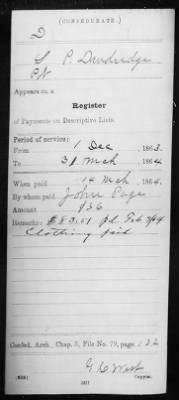 (CONFEDERATE.)
D
S P. Dandridge
Pvt
Appears on a
Register
of Payments on Descriptive Lists.
Period of service:
From 1 Dec , 1863.
To 31 Mch , 1864.
When paid 14 Mch , 1864.
By whom paid John Page
Amount $36
Remarks: $83.81 pd. Feb 9/64
Clothing paid
Confed. Arch., Chap. 3, File No. 79, page 132
G C West
Copyist.